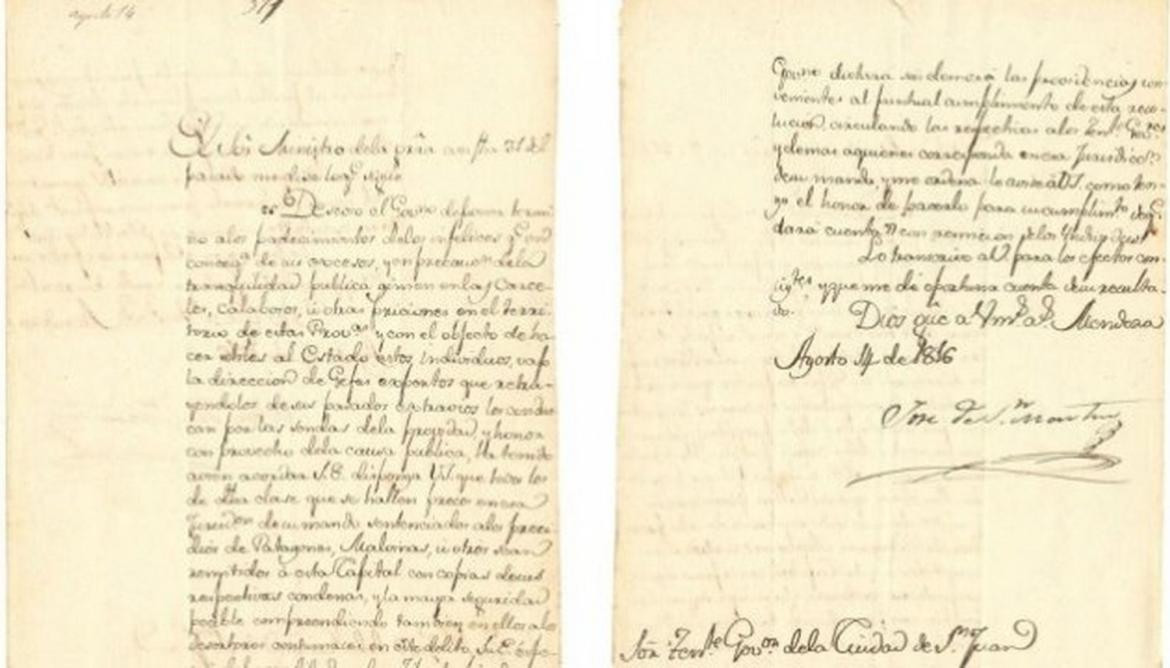 agosto 14
El Sor Ministro dela grra con fha 31 del
pasado me dise lo qe sigue
"Deseoso el Govno de poner termi-
no alos padecimientos delos infelices qe en
conseqa de sus excesos, y en precaucion dela
tranquilidad publica gimen en las Carce-
les, calabozos, ú otras priciones en el terri-
torio de estas Provas y con el objecto de ha-
cer utiles al Estado estos individuos, vajo
la direccion de Gefes expertos que retra-
yendolos de sus pasados extravios los condus-
can por las sendas dela providad, y honor
con provecho dela causa publica, Ha tenido
a vien acordar S.E. disponga V.S. que todos los
de dha clase que se hallen presos en esa
Jurisdon de su mando sentenciados alos presi-
dios de Patagones, Malvinas, ú otros sean
remitidos á esta Capital con copias desus
respectivas condenas, y la mayor seguridad
posible comprendiendo tambien en ellos alos
desertores contumaces en este delito. Su E.
Govno dictara sin demora las providencias con-
venientes al puntual cumplimento de esta reso-
lucion, circulando las respectivas alos Tents Govres
y demas aquienes corresponda en esa Jurisdicon
de su mando, y me ordena lo avise a V.S. como ten-
go el honor de hacerlo para su cumplimto
dará cuenta con remicion delos Individuos"
Lo transcrivo a V. para los efectos con-
sigtes y que me dé oportuna cuenta de su resulta-
do.
Dios gue a V. ms as. Mendoza
Agosto 14 de 1816
José de Sn Martin
Sor Tente Govor dela Ciudad de Sn Juan